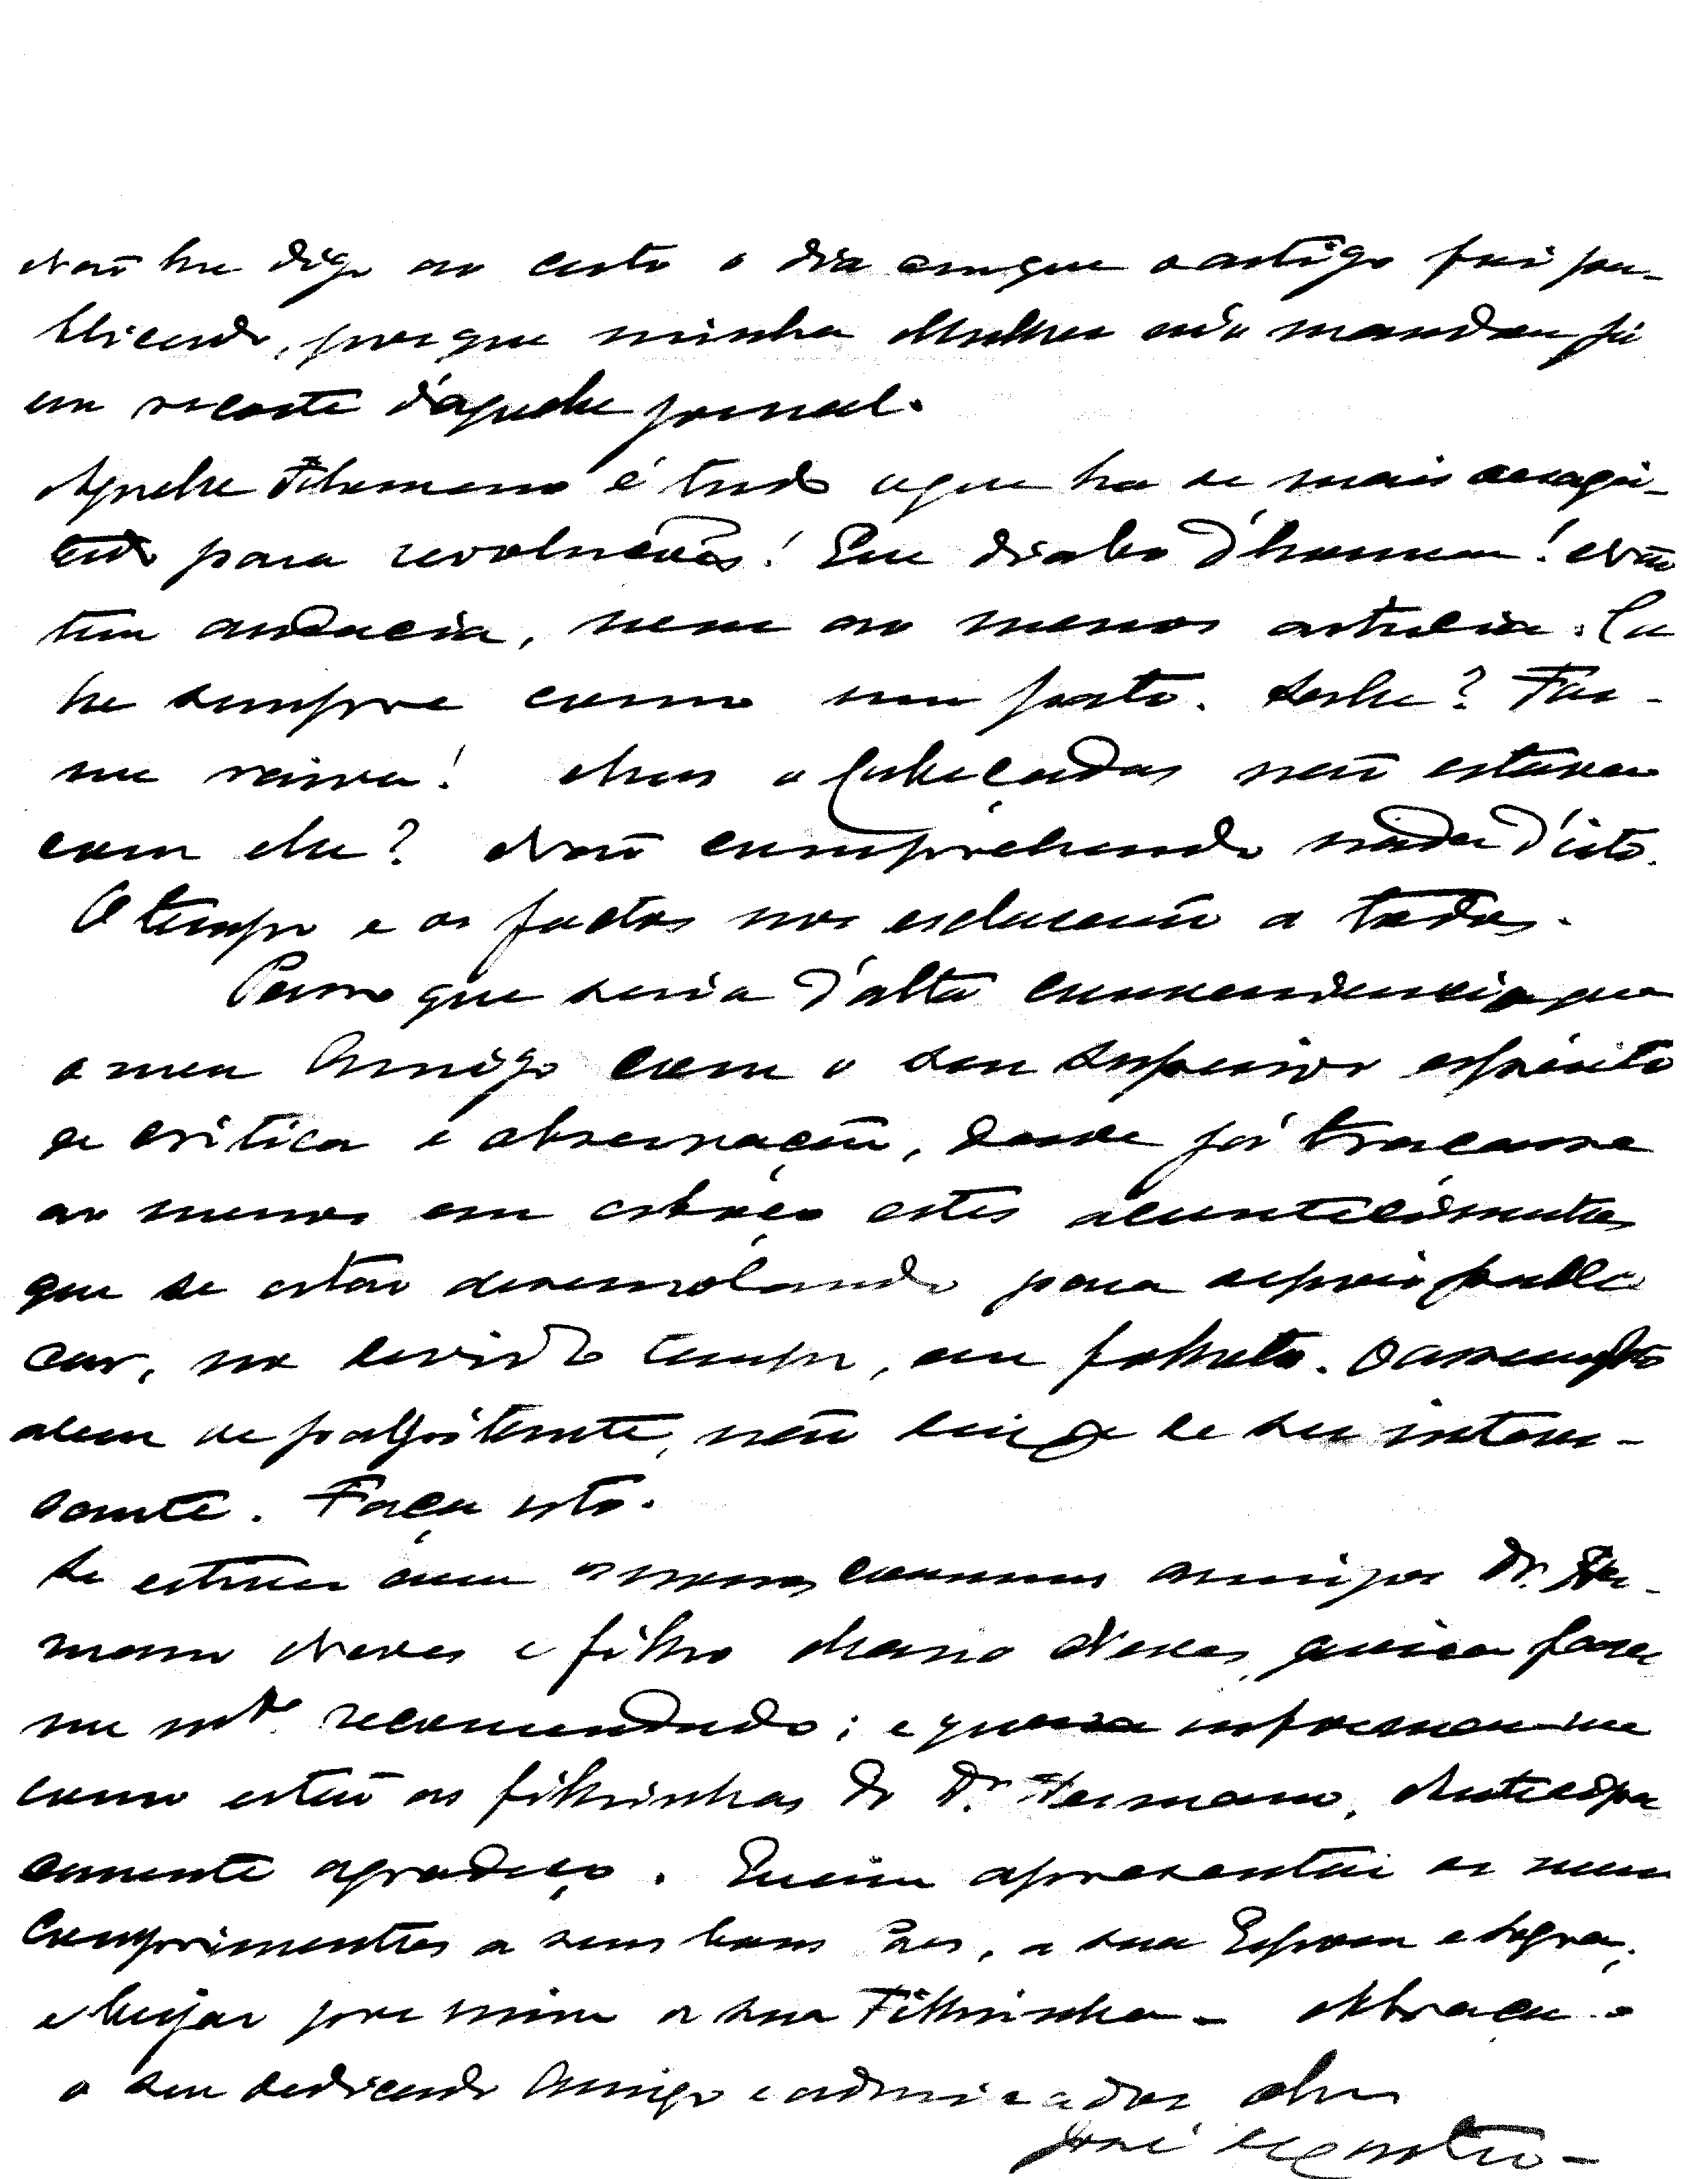 Não lhe digo ao certo o dia em que o artigo foi pu-
blicado, porque minha Mulher só m'o mandou foi
um recorte d'aquelle jornal.
Aquelle Filomeno é tudo o que ha de mais
para revoluções! Que diabo d'homem! Não
tem audacia, nem ao menos astucia. Ca
he sempre como um pato. Sabe? Faz-
me raiva! Mas o Cabeçadas não estava
com elle? Não comprehendo nada d'isto.
O tempo e os factos nos esclarecerão a todos.
Penso que seria d'alta conveniencia que
o meu Amigo com o seu superior espirito
de critica e observação, desde já traçasse
ao menos em esboço estes acontecimentos
que se estão desenrolando para depois publi
car, no devido tempo, em folheto. O assumpto
alem de palpitante, não deixa de ser interes-
sante. Faça isto.
Se estiver com os nossos communs amigos Dr. Her-
mano Neves e filho Mario Neves, queira fazer
me mto. recomendado; e queira informar-me
como estão as filhinhas do Dr. Hermano. Antecipa
damente agradeço. Queira apresentar os meus
Cumprimentos a seus bons Paes, a sua Esposa e Sogra,
e beijar por mim a sua Filhinha. Abraça-o
o seu dedicado Amigo e admirador
José de Castro-